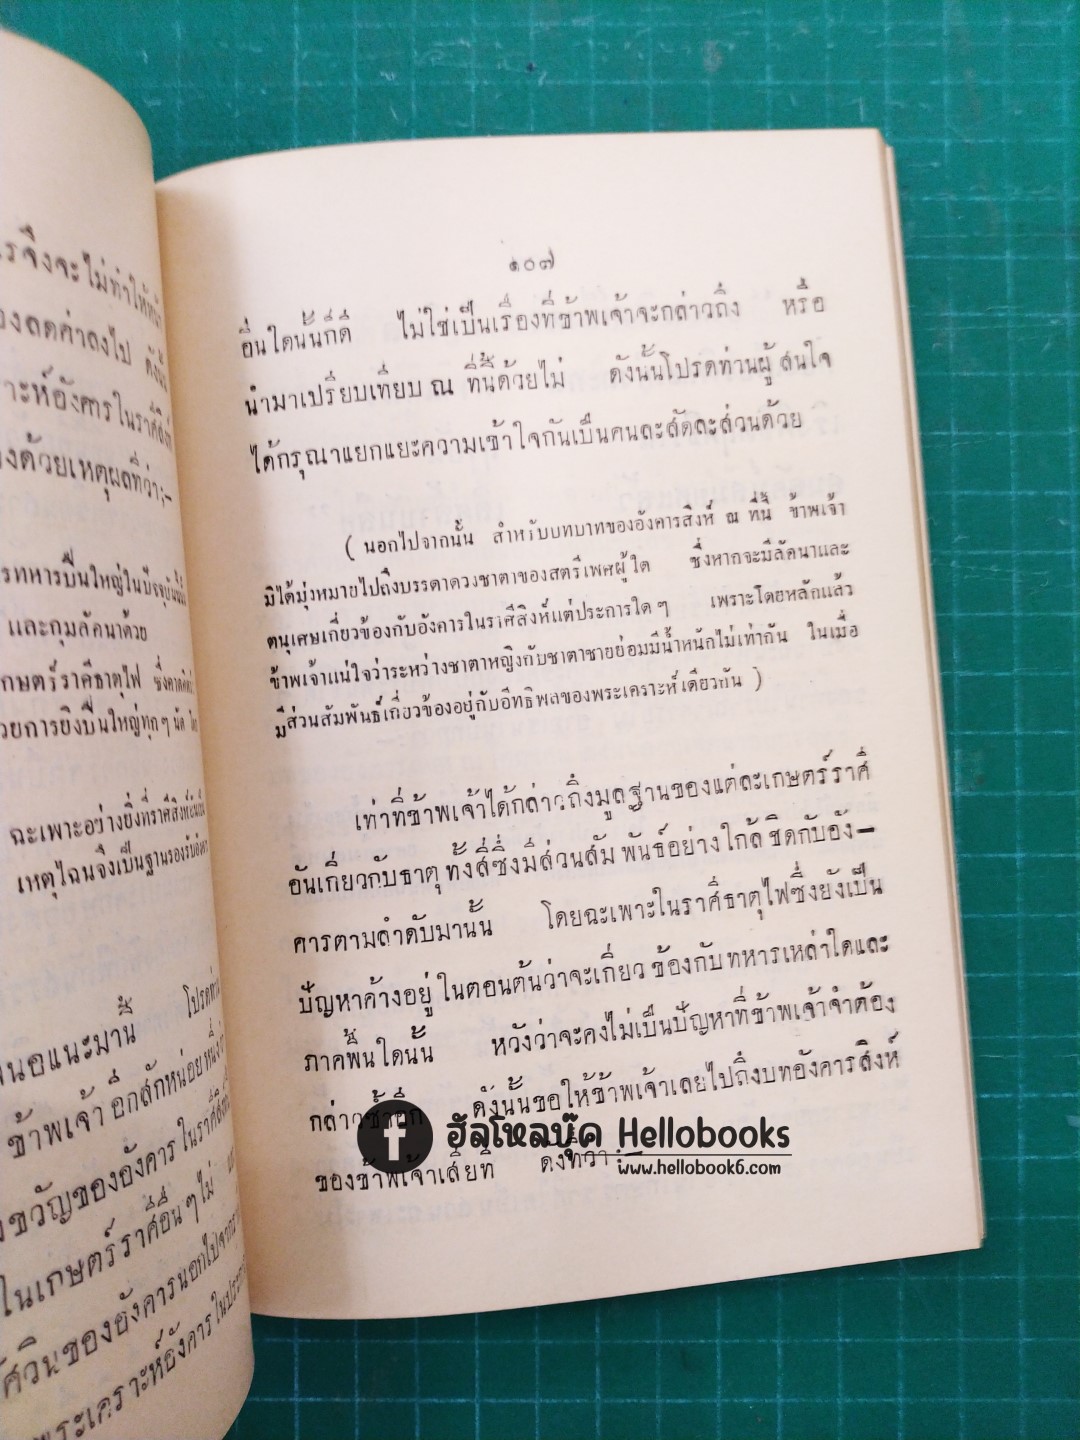 รจึงจะไม่ทำให้
องลดค่าลงไป ดังนั้น
าะห์อังคารในราศีสิงห์
องด้วยเหตุผลที่ว่า;-
รทหารปืนใหญ่ในปัจจุบันนี้
และกุมลัคนาด้วย
กษตร์ราศีธาตุไฟ ซึ่ง
วยการยิงปืนใหญ่ทุกๆนัด
ฉะเพาะอย่างยิ่งที่ราศีสิงห์
เหตุไฉนจึงเป็นฐานรองรับอังคา
นอแนะมานี้ โปรดท่าน
ข้าพเจ้า อีกสักหน่อยหนึ่ง
งขวัญของอังคารในราศีสิงห
ในเกษตร์ราศีอื่นๆไม่
ศวินของอังคารนอกไปจาก
พระเคราะห์อังคารในประก
๑๐๗
อื่นใดนั้นก็ดี ไม่ใช่เป็นเรื่องที่ข้าพเจ้าจะกล่าวถึง หรือ
นำมาเปรียบเทียบ ณ ที่นี้ด้วยไม่ ดังนั้นโปรดท่านผู้สนใจ
ได้กรุณาแยกแยะความเข้าใจกันเป็นคนละสัดละส่วนด้วย
( นอกไปจากนั้น สำหรับบทบาทของอังคารสิงห์ ณ ที่นี้ ข้าพเจ้า
มิได้มุ่งหมายไปถึงบรรดาดวงชาตาของสตรีเพศผู้ใด ซึ่งหากจะมีลัคนาและ
ตนุเศษเกี่ยวข้องกับอังคารในราศีสิงห์แต่ประการใดๆ เพราะโดยหลักแล้ว
ข้าพเจ้าแน่ใจว่าระหว่างชาตาหญิงกับชาตาชายย่อมมีน้ำหนักไม่เท่ากัน ในเมื่อ
มีส่วนสัมพันธ์เกี่ยวข้องอยู่กับอิทธิพลของพระเคราะห์เดียวกัน )
เท่าที่ข้าพเจ้าได้กล่าวถึงมูลฐานของแต่ละเกษตร์ราศี
อันเกี่ยวกับธาตุทั้งสี่ซึ่งมีส่วนสัมพันธ์อย่างใกล้ชิดกับอัง-
คารตามลำดับมานั้น โดยฉะเพาะในราศีธาตุไฟซึ่งยังเป็น
ปัญหาค้างอยู่ในตอนต้นว่าจะเกี่ยวข้องกับทหารเหล่าใดและ
ภาคพื้นใดนั้น หวังว่าจะคงไม่เป็นปัญหาที่ข้าพเจ้าจำต้อง
กล่าวซ้ำอีก ดังนั้นขอให้ข้าพเจ้าเลยไปถึงบทอังคารสิงห์
ของข้าพเจ้าเสียที ดังที่ว่า:-
f ฮัลโหลบุ๊ค Hellobooks
www.hellobook6.com